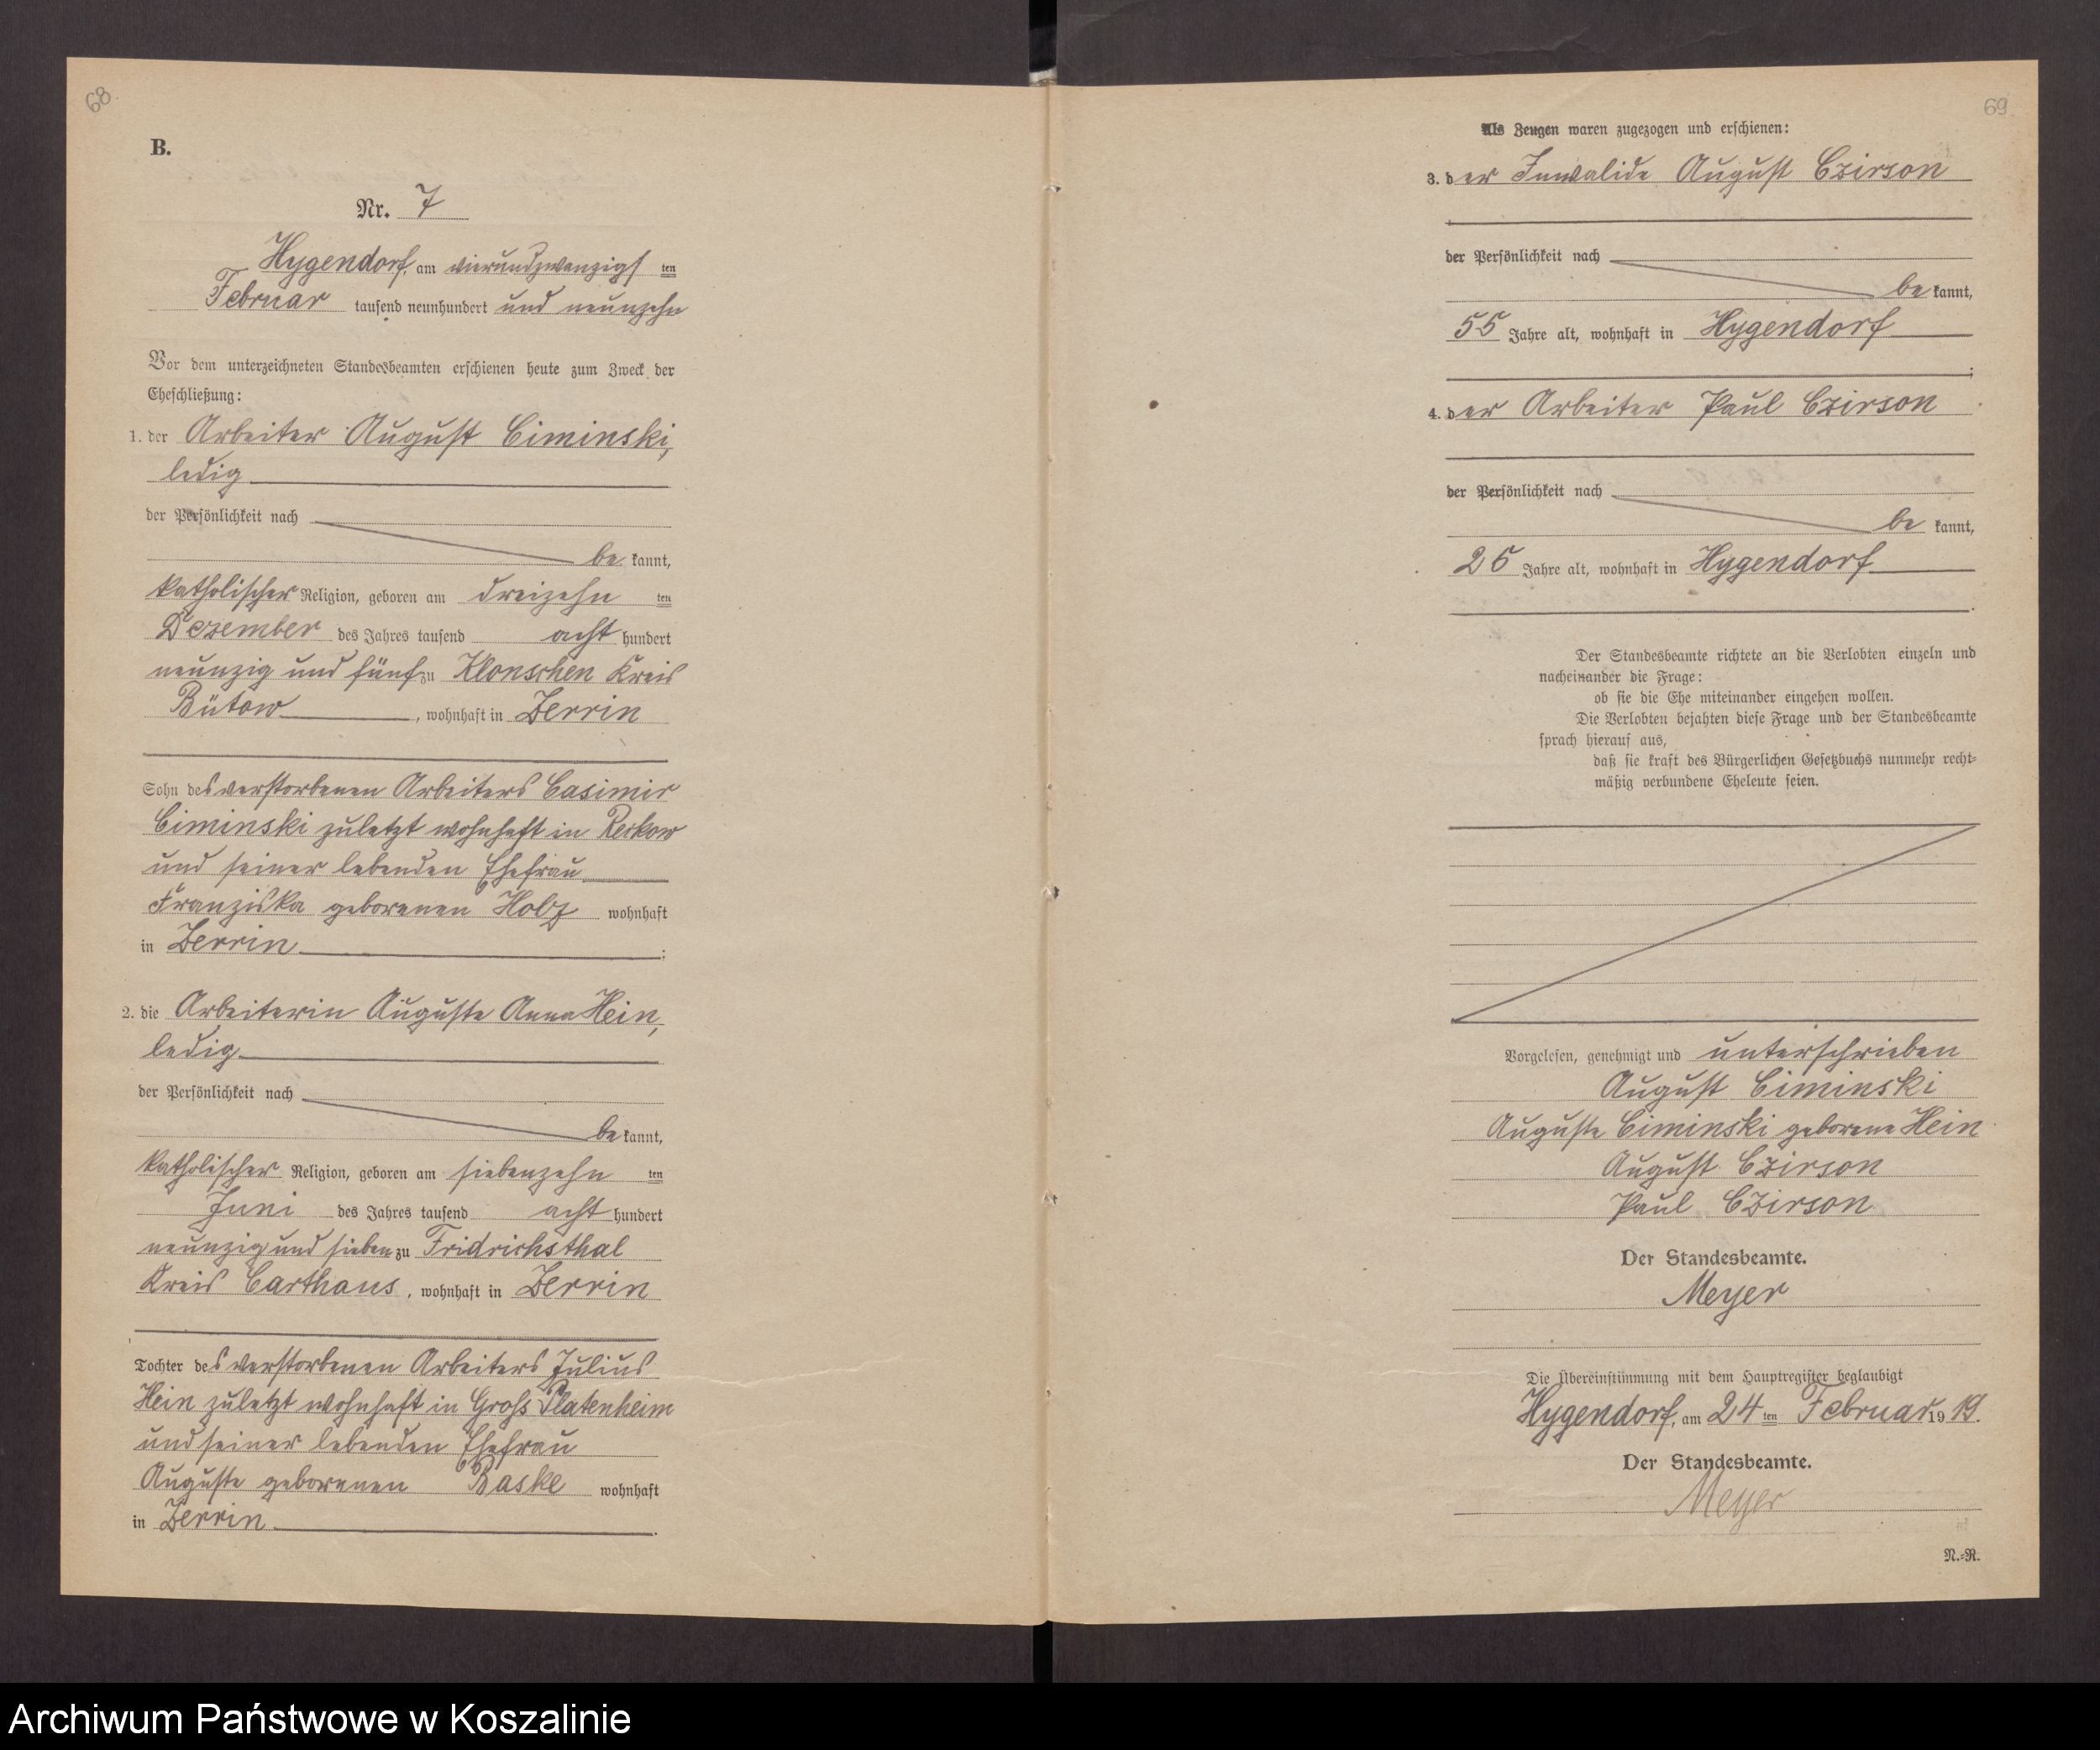 68
B.
Nr. 7
Hygendorf, am vierundzwanzigsten
Februar tausend neunhundert und neunzehn
Vor dem unterzeichneten Standesbeamten erschienen heute zum Zweck der
Eheschließung:
1. der Arbeiter August Ciminski,
ledig
der Persönlichkeit nach
be kannt,
katholischer Religion, geboren am dreizehn ten
Dezember des Jahres tausend acht hundert
neunzig und fünf zu Klonschen Kreis
Bütow, wohnhaft in Zerrin
Sohn des verstorbenen Arbeiters Casimir
Ciminski zuletzt wohnhaft in Reckow
und seiner lebenden Ehefrau
Franziska geborenen Holz wohnhaft
in Zerrin;
2. die Arbeiterin Auguste Anna Hein,
ledig
der Persönlichkeit nach
be kannt,
katholischer Religion, geboren am siebenzehn ten
Juni des Jahres tausend acht hundert
neunzig und sieben zu Fridrichsthal
Kreis Carthaus, wohnhaft in Zerrin
Tochter des verstorbenen Arbeiters Julius
Hein zuletzt wohnhaft in Gross Platenheim
und seiner lebenden Ehefrau
Auguste geborenen Baske wohnhaft
in Zerrin.
69
Als Zeugen waren zugezogen und erschienen:
3. der Invalide August Czirson
der Persönlichkeit nach
be kannt,
55 Jahre alt, wohnhaft in Hygendorf
;
4. der Arbeiter Paul Czirson
der Persönlichkeit nach
be kannt,
25 Jahre alt, wohnhaft in Hygendorf
.
Der Standesbeamte richtete an die Verlobten einzeln und
nacheinander die Frage:
ob sie die Ehe miteinander eingehen wollen.
Die Verlobten bejahten diese Frage und der Standesbeamte
sprach hierauf aus,
daß sie kraft des Bürgerlichen Gesetzbuchs nunmehr recht-
mäßig verbundene Eheleute seien.
Vorgelesen, genehmigt und unterschrieben
August Ciminski
Auguste Ciminski geborene Hein
August Czirson
Paul Czirson
Der Standesbeamte.
Meyer
Die Übereinstimmung mit dem Hauptregister beglaubigt
Hygendorf, am 24 ten Februar 19 19.
Der Standesbeamte.
Meyer
N.-R.
Archiwum Państwowe w Koszalinie